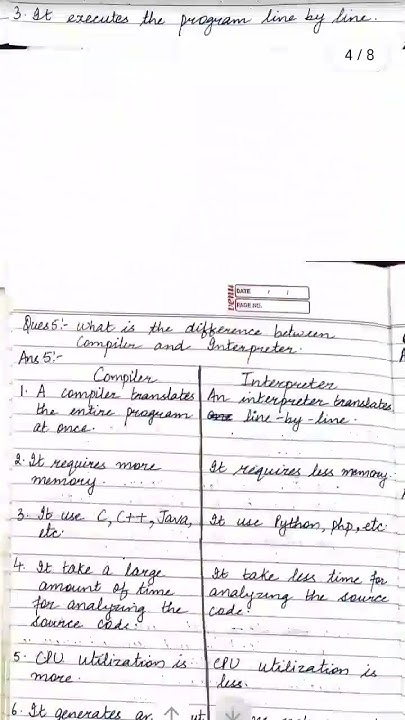 3. It executes the program line by line.
4 / 8
DATE / /
PAGE NO.
Ques5:- what is the difference between
Compiler and Interpreter.
Ans 5:-
Compiler
Interpreter
1. A compiler translates
the entire program
at once.
An interpreter translates
line-by-line.
2. It requires more
memory.
It requires less memory.
3. It use C, C++, Java,
etc.
It use Python, php, etc.
4. It take a large
amount of time
for analyzing the
source code.
It take less time for
analyzing the source
code.
5. CPU utilization is
more.
CPU utilization is
less.
6. It generates an